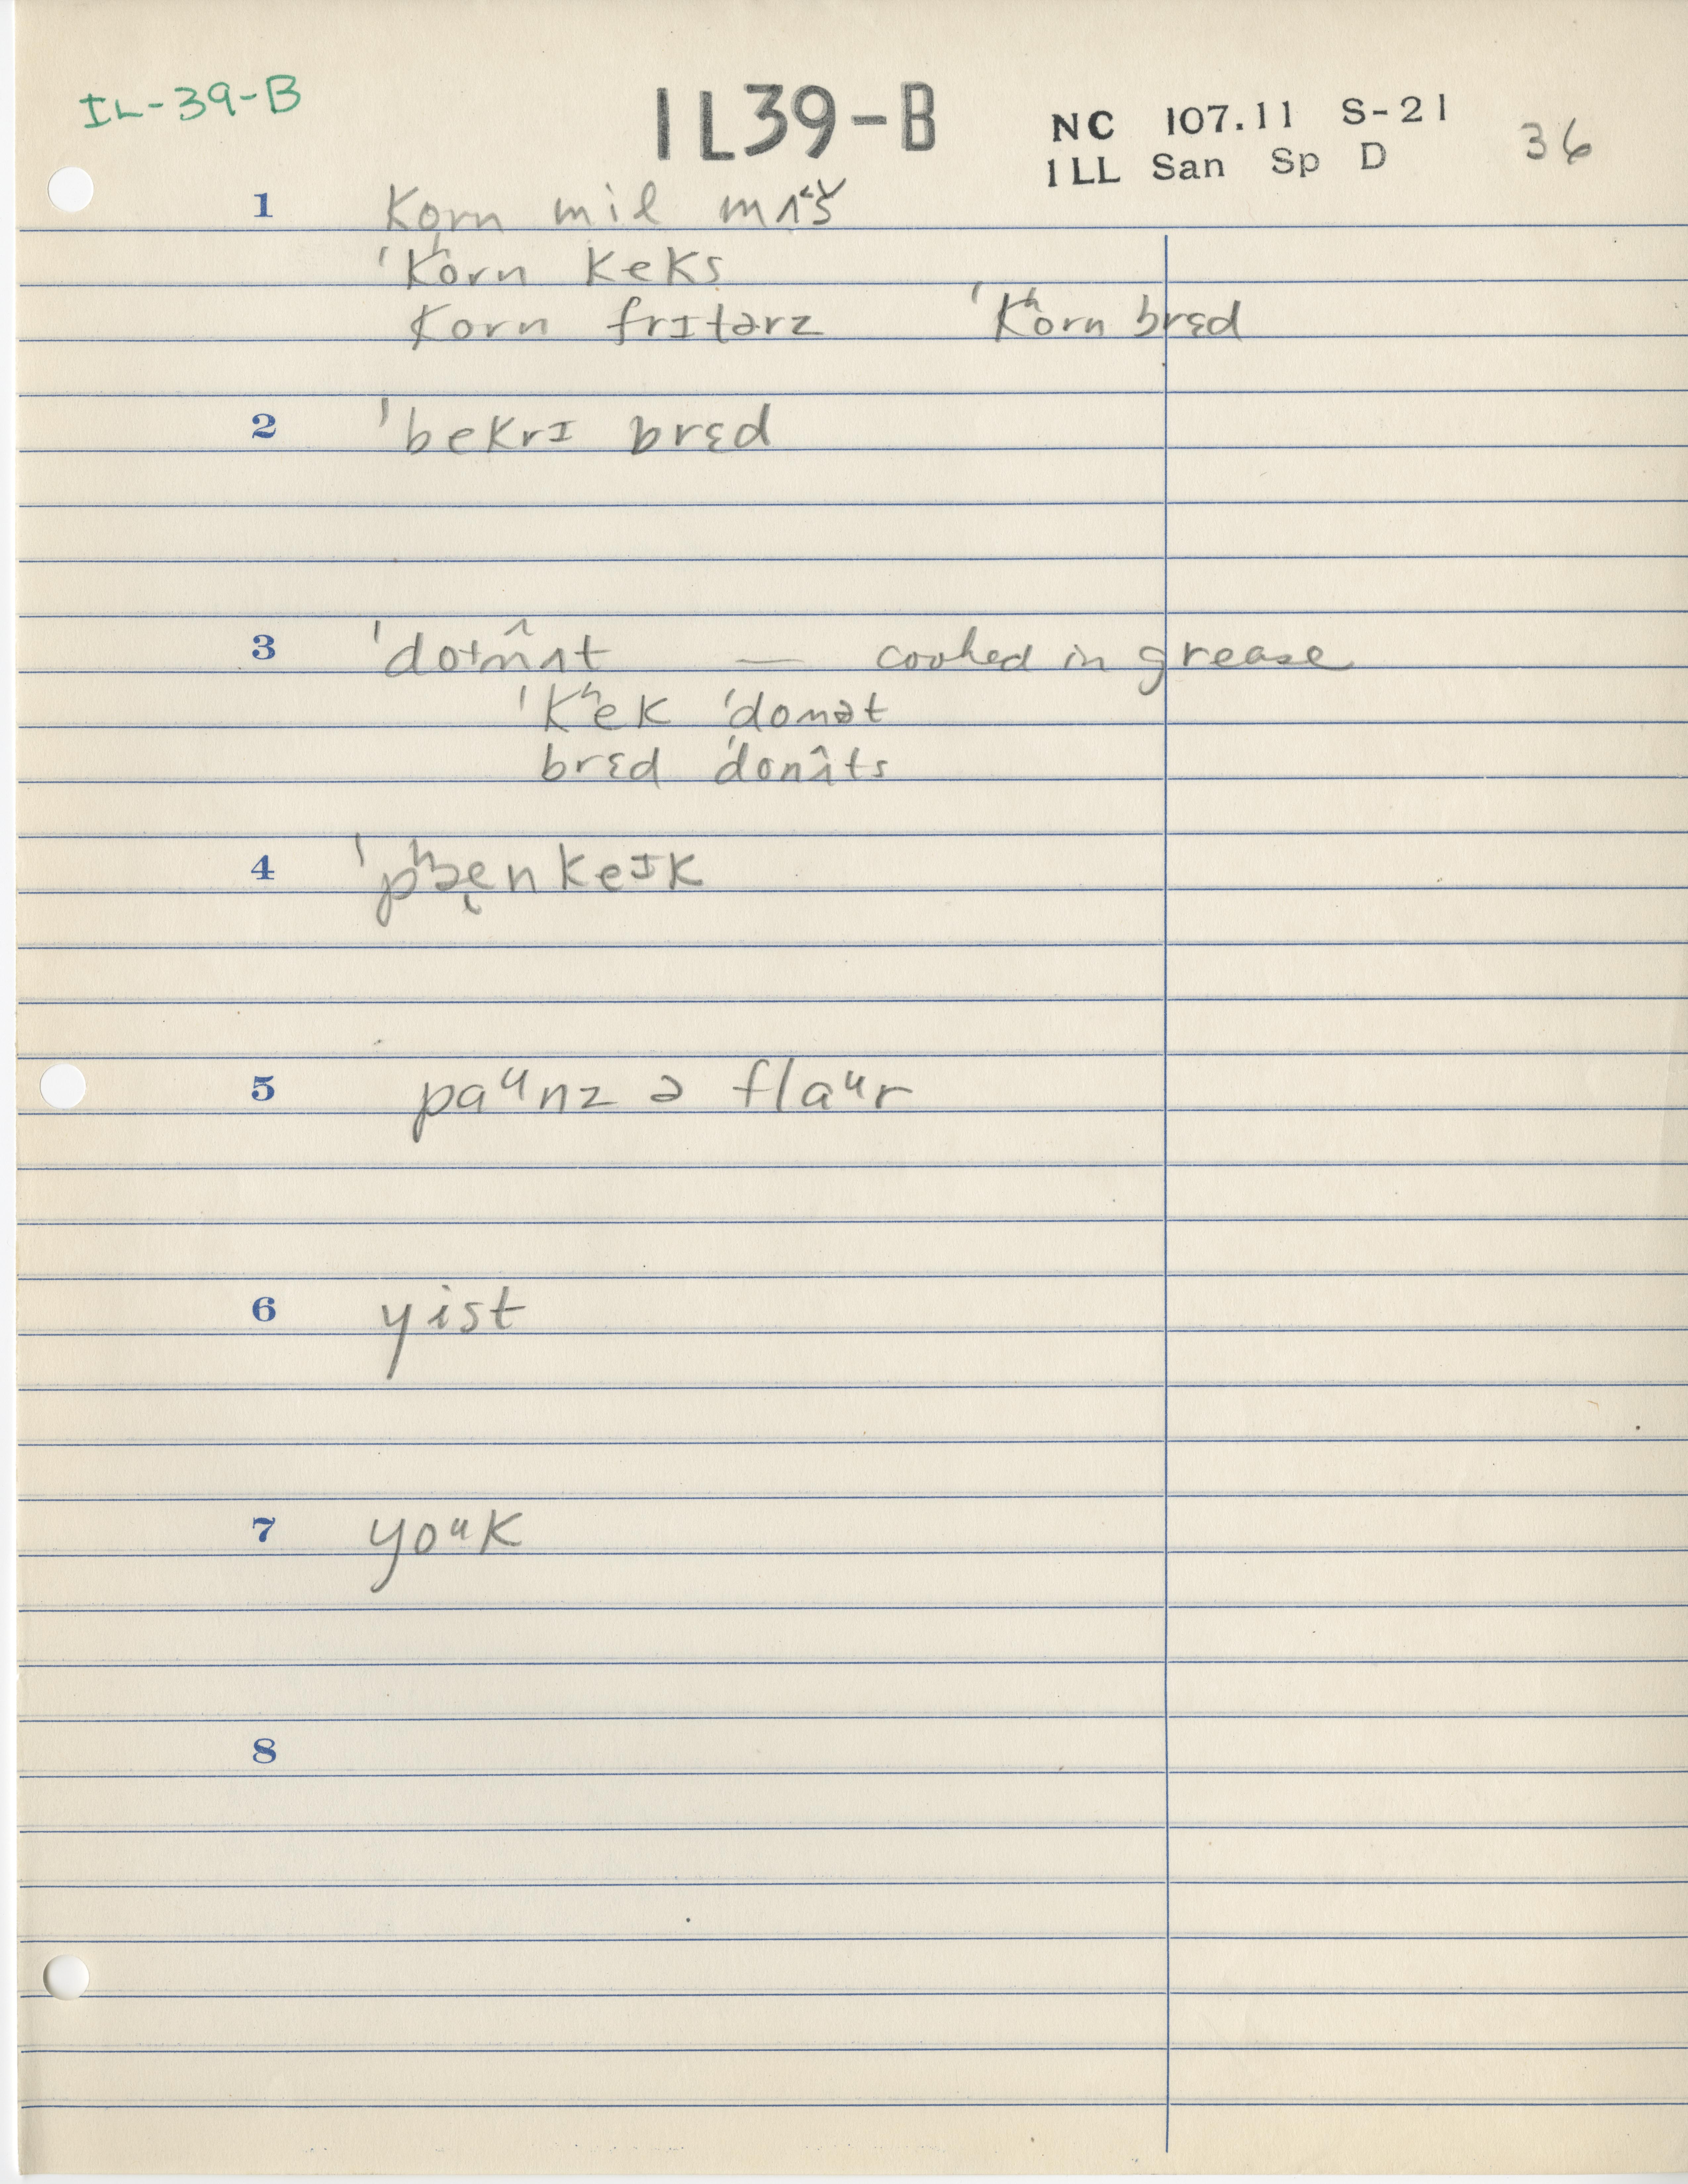 IL-39-B
IL39-B
NC 107.11 S-21
ILL San Sp D
36
1 kọrn mil mʌš̌
ˈkʰorn keks
korn frɪtərz ˈkʰorn brɛd
2 ˈbekrɪ brɛd
3 — cooked in grease
ˈkʰek ˈdonət
brɛd ˈdonʌ̂ts
4 ˈpʰæ̨nkeɪk
5 paᵘnz ə flaᵘr
6 yist
7 yoᵘk
8